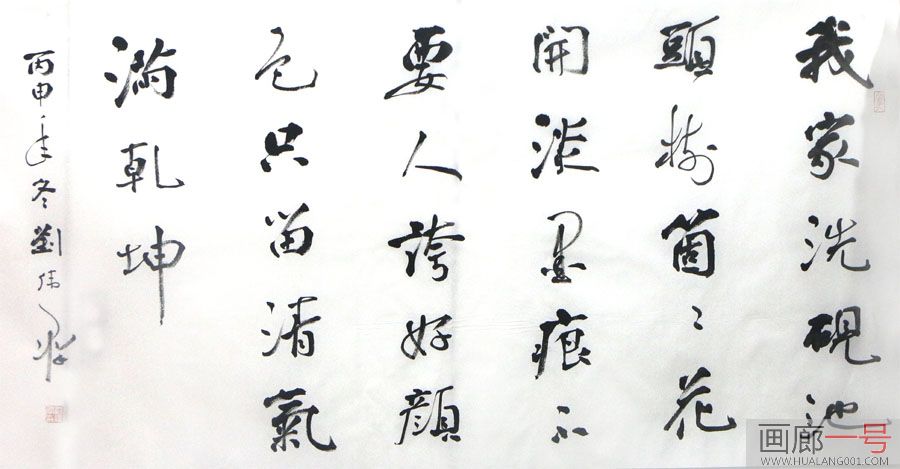 我家洗硯池
頭樹箇〻花
開淡墨痕不
要人誇好顏
色只留清氣
滿乾坤
丙申年冬劉偉
画廊一号
WWW.HUALANG001.COM